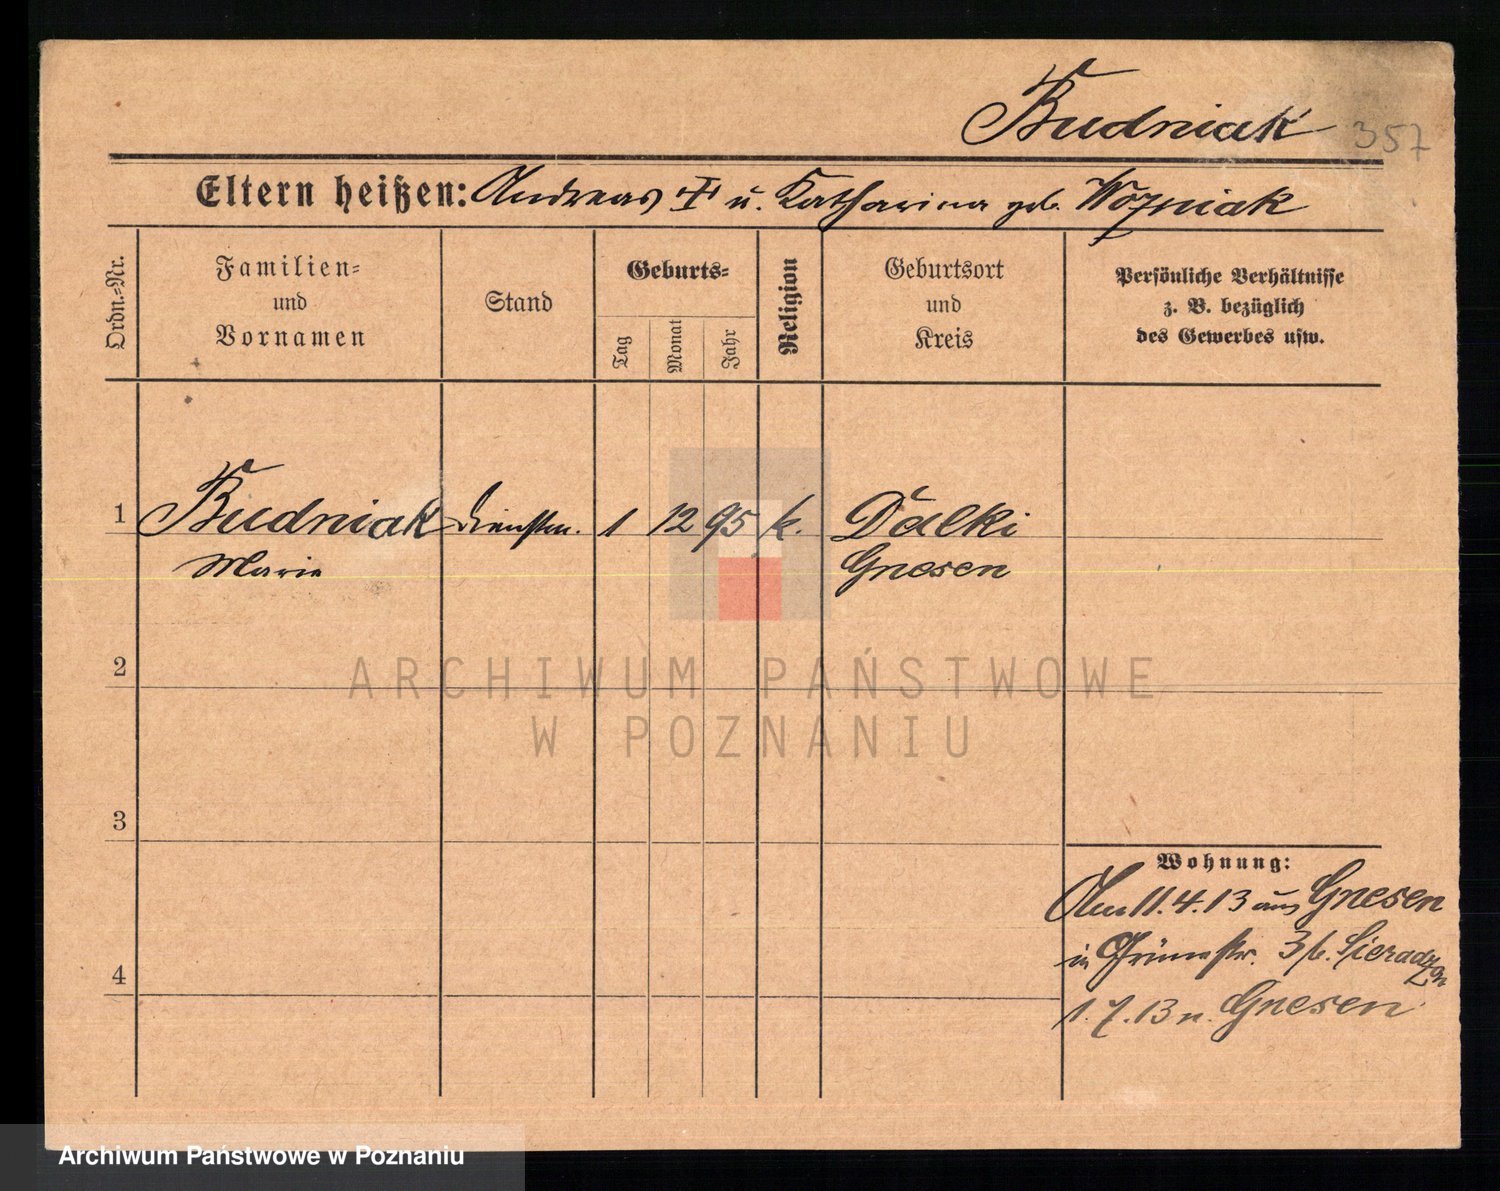 Budniak 357
Eltern heißen: Andreas u. Katharina geb. Wozniak
Ordn.-Nr.
Familien-
und
Vornamen
Stand
Geburts-
Tag
Monat
Jahr
Religion
Geburtsort
und
Kreis
Persönliche Verhältnisse
z. B. bezüglich
des Gewerbes usw.
1 Budniak Dienstm. 1 12 95 k. Dalki
Marie Gnesen
2
ARCHIWUM PAŃSTWOWE
W POZNANIU
3
Wohnung:
Am 11.4.13 aus Gnesen
in 3 b.
4
1.7.13 n. Gnesen
Archiwum Państwowe w Poznaniu